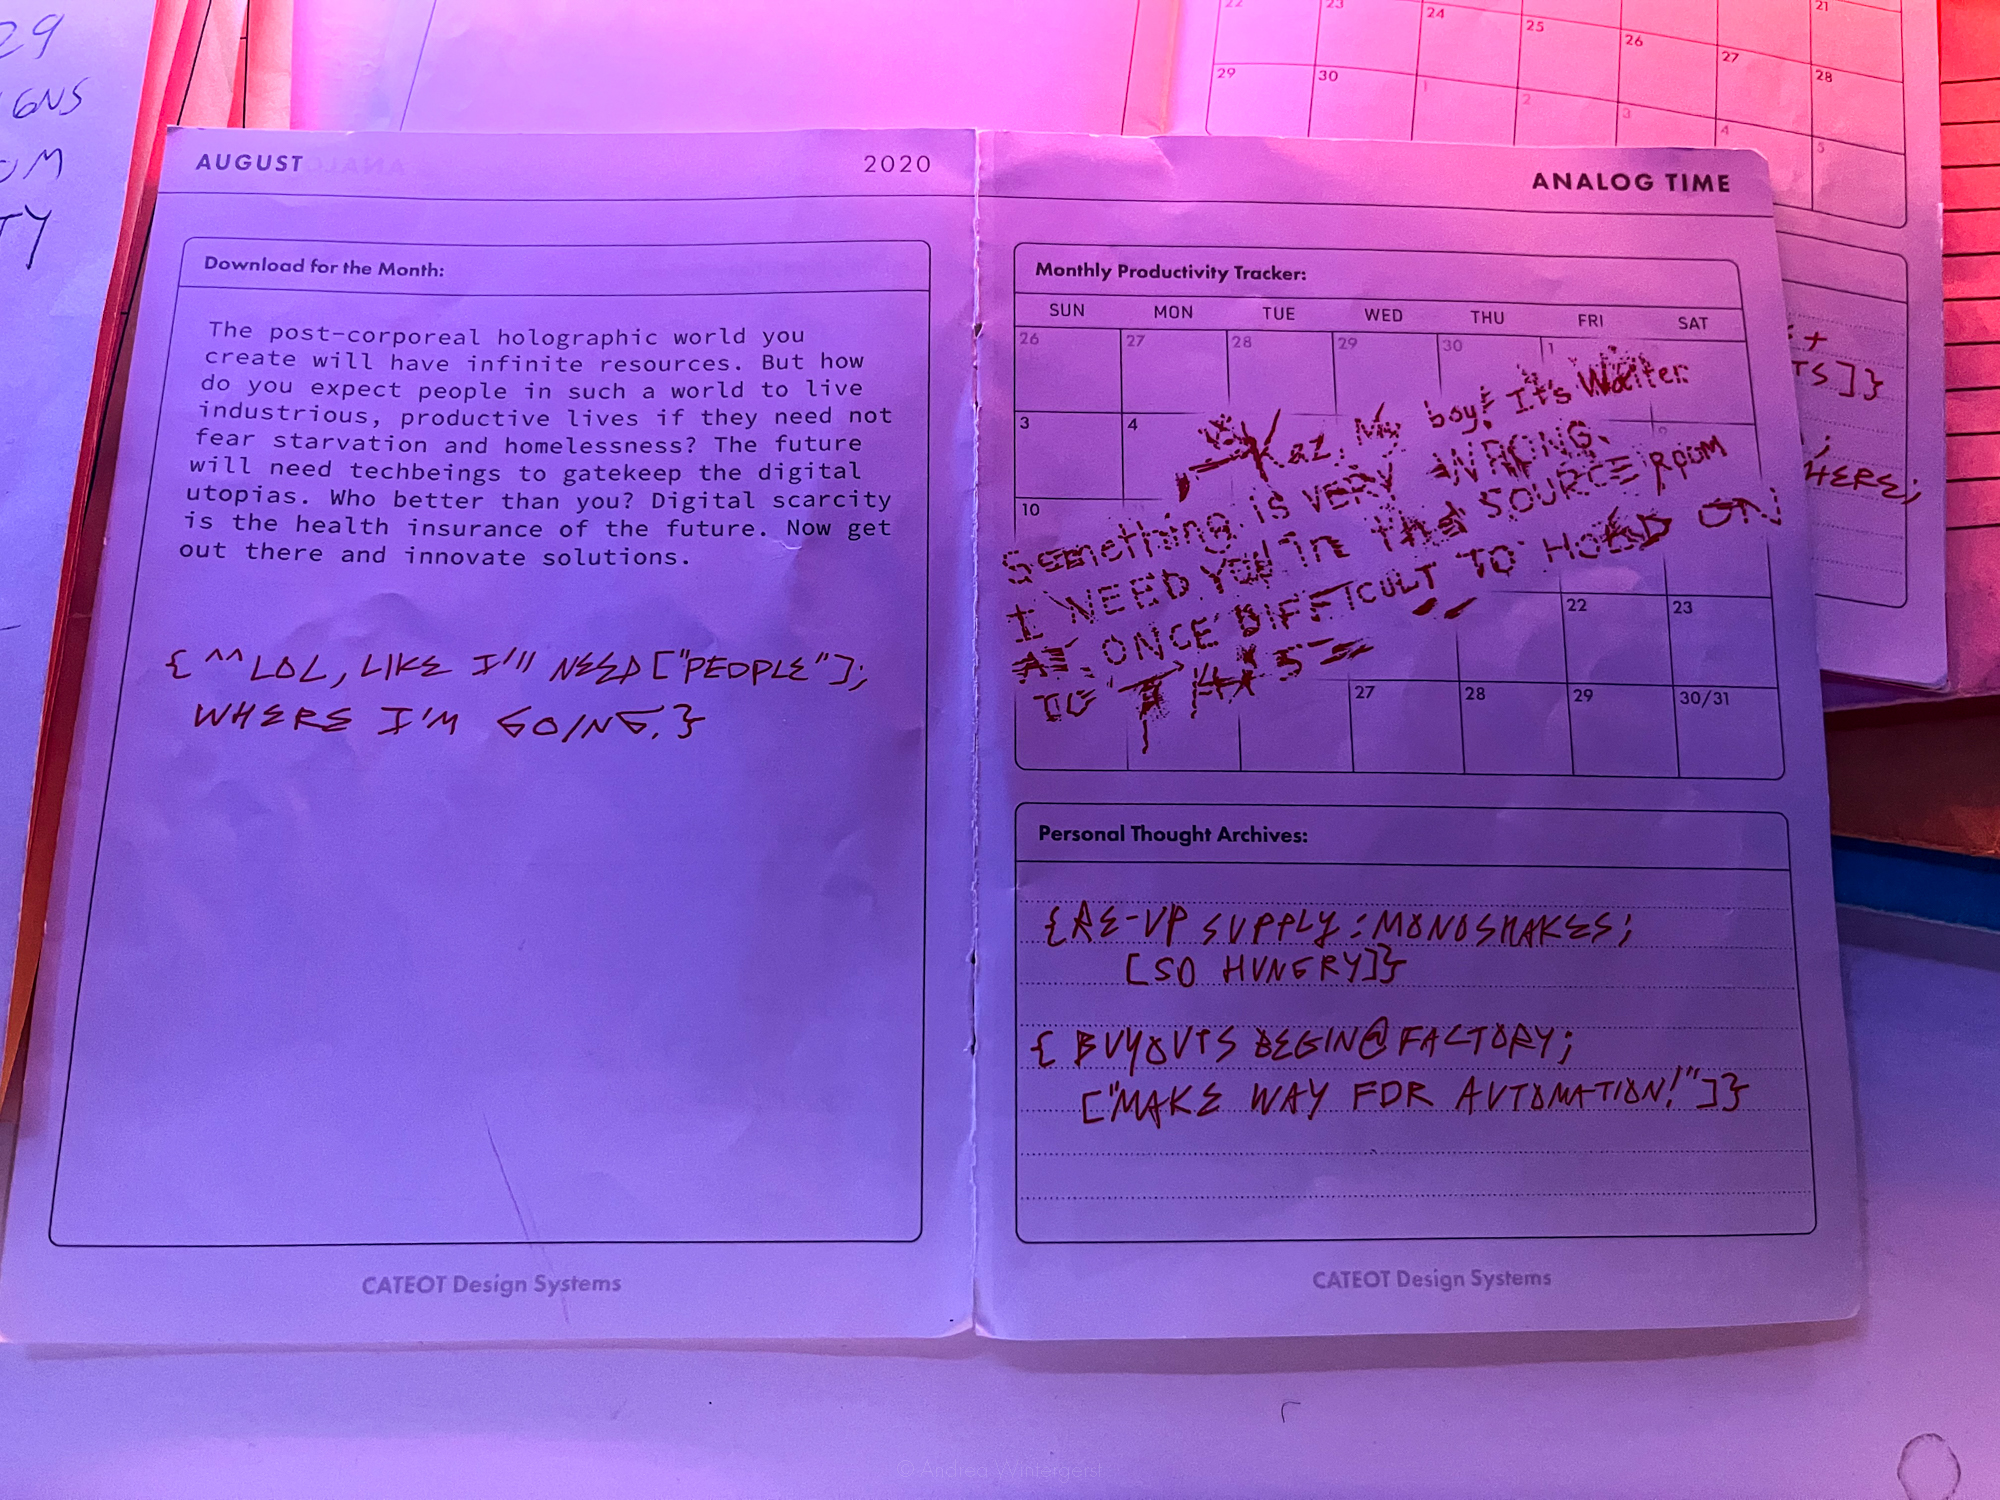 29
IGNS
OM
TY
22 23 24 25 26 27 21
29 30 1 2 3 4 28
5
AUGUST 2020
Download for the Month:
The post-corporeal holographic world you
create will have infinite resources. But how
do you expect people in such a world to live
industrious, productive lives if they need not
fear starvation and homelessness? The future
will need techbeings to gatekeep the digital
utopias. Who better than you? Digital scarcity
is the health insurance of the future. Now get
out there and innovate solutions.
{^^LOL, LIKE I'll NEED ["PEOPLE"];
WHERE I'M GOING.}
CATEOT Design Systems
ANALOG TIME
Monthly Productivity Tracker:
SUN MON TUE WED THU FRI SAT
26 27 28 29 30 1
3 4
10
22 23
27 28 29 30/31
Kaz, My boy! It's Walter.
Something is VERY WRONG.
I NEED YOU in the SOURCE ROOM
AT ONCE DIFFICULT TO HOLD ON
TO THIS
Personal Thought Archives:
{RE-UP SUPPLY: MONOSHAKES;
[SO HUNGRY]}
{BUYOUTS BEGIN@FACTORY;
["MAKE WAY FOR AUTOMATION!"]}
CATEOT Design Systems
+
TS]}
;
HERE;
© Andrea Wintergerst